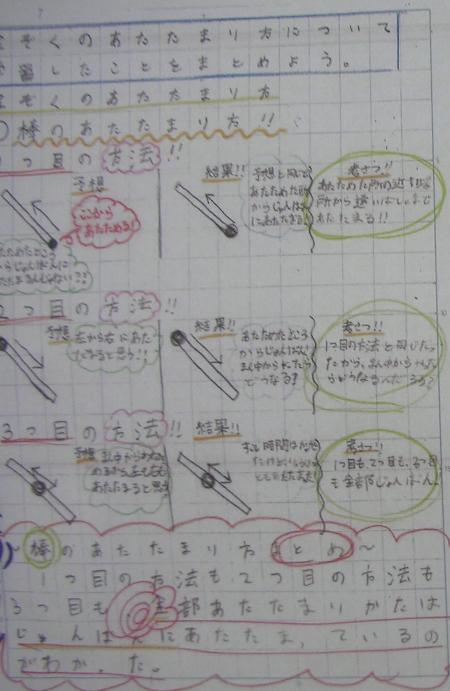 ぞくのあたたまり方について
習したことをまとめよう。
ぞくのあたたまり方
棒のあたたまり方!!
1つ目の方法!!
予想
ここから
あたためる!
結果!!
予想と同じで
あたためた所
からじゅんばん
にあたたまる!
考さつ!!
あたためた所の近
所から遠い
あたたまる!!
あたためたところ
からじゅんばんに
たまるんじゃない??
2つ目の方法!!
予想
左から右にあた
たまると思う!!
結果!!
あたためたところ
からじゅんばん!
まん中から
どうなる?
考さつ!!
1つ目の方法と同じだった
だから、まん中から
どうなるんだろう?
3つ目の方法!!
予想
まん中から
あたたまると思う
結果!!
考さつ!!
1つ目も、2つ目も、3つ目
も全部じゅんばん!
~棒のあたたまり方まとめ~
1つ目の方法も2つ目の方法も
3つ目も全部あたたまりかたは
じゅんばんにあたたまっているの
でわかった。